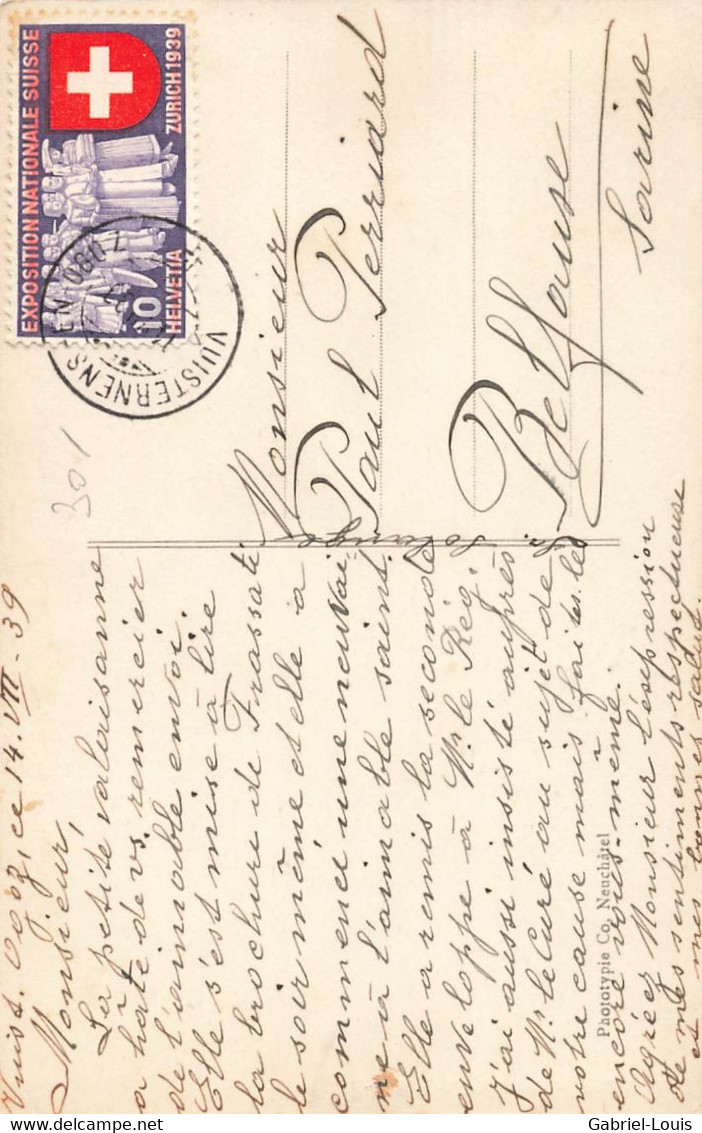 Vuist. Ogoz, ce 14. VII - 39
Monsieur,
La petite valaisanne
a hâte de vs. remercier
de l'aimable envoi.
Elle s'est mise à lire
la brochure de Frassati
le soir même et elle a
commencé une neuvai
ne à l'aimable saint.
Elle a remis la seconde
enveloppe à Mr. le Rég.
J'ai aussi insisté auprès
de Mr. le Curé au sujet de
votre cause mais faites-le
encore vous-même.
Agréez Monsieur l'expression
de mes sentiments respectueuse
et mes bonnes salut.
Monsieur
Paul Perriard
Belfause
Sarine
301
EXPOSITION NATIONALE SUISSE
ZURICH 1939
10
HELVETIA
VUISTERNENS
Phototypie Co. Neuchâtel
Gabriel-Louis